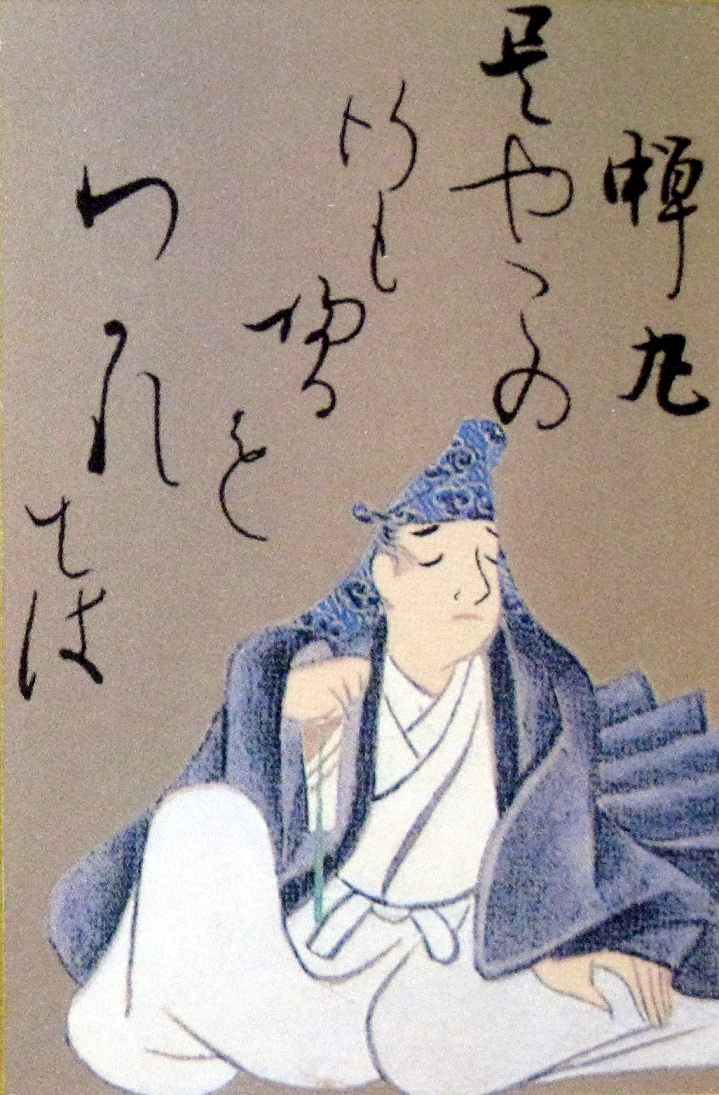 蝉丸
是やこの
行も
帰るも
わかれ
ては